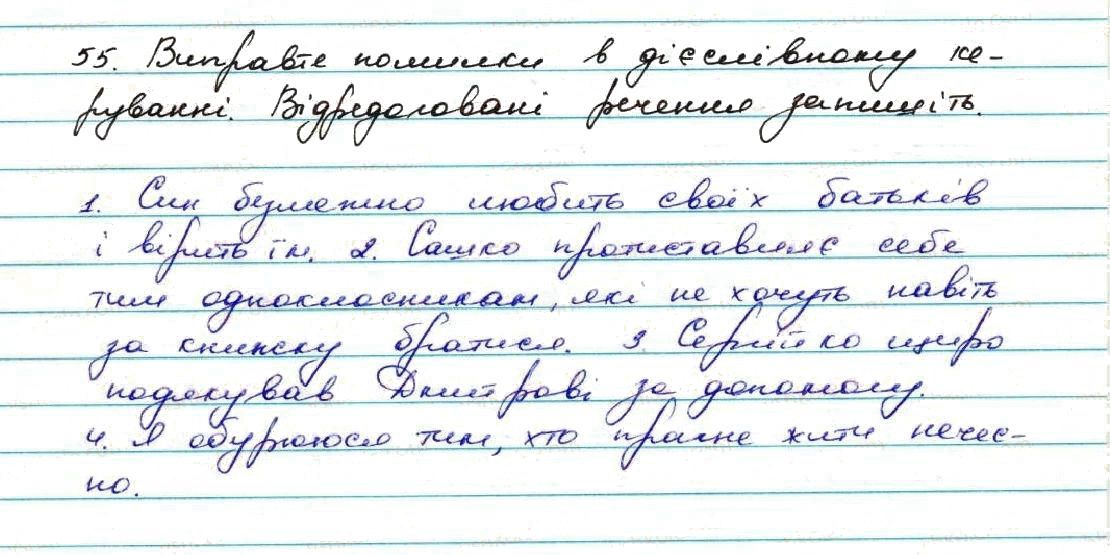 55. Виправте помилки в дієслівному ке-
руванні. Відредаговані речення запишіть.
1. Син безмежно любить своїх батьків
і вірить їм. 2. Сашко протиставляє себе
тим однокласникам, які не хочуть навіть
за книжку братися. 3. Сергійко щиро
подякував Дмитрові за допомогу.
4. Я обурююся тим, хто прагне жити нечес-
но.